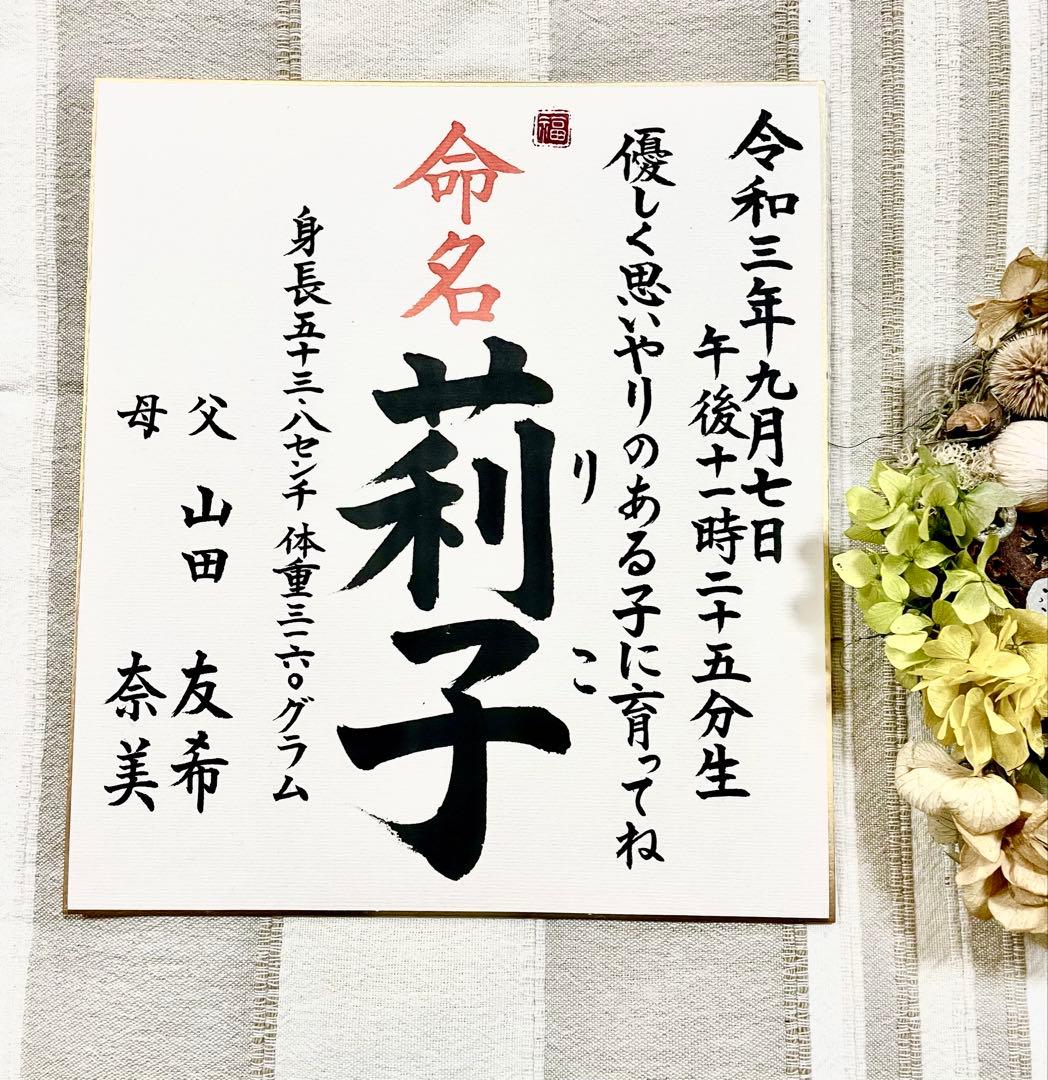 令和三年九月七日
午後十一時二十五分生
優しく思いやりのある子に育ってね
りこ
福
命名 莉子
身長五十三・八センチ 体重三一六〇グラム
父 山田 友希
母 奈美